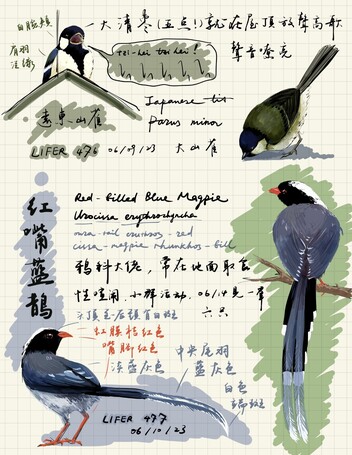 白脸颊
一大清枣(五点!!)就在屋顶放声高歌
声音嘹亮
背羽
tsi-hei tsi hei!
Japanese tit
Parus minor
远东山雀
LIFER 476 06/09/23 大山雀
红嘴蓝鹊
Red-billed Blue Magpie
Urocissa erythroryncha
cissa-magpie rhunkhos-bill
鸦科大佬,常在地面取食
性喧闹,小群活动. 06/14见一群
六只
红膜桔红色
嘴脚红色
中央尾羽
蓝灰色
冻蓝灰色
白色
端斑
LIFER 477
06/10/23